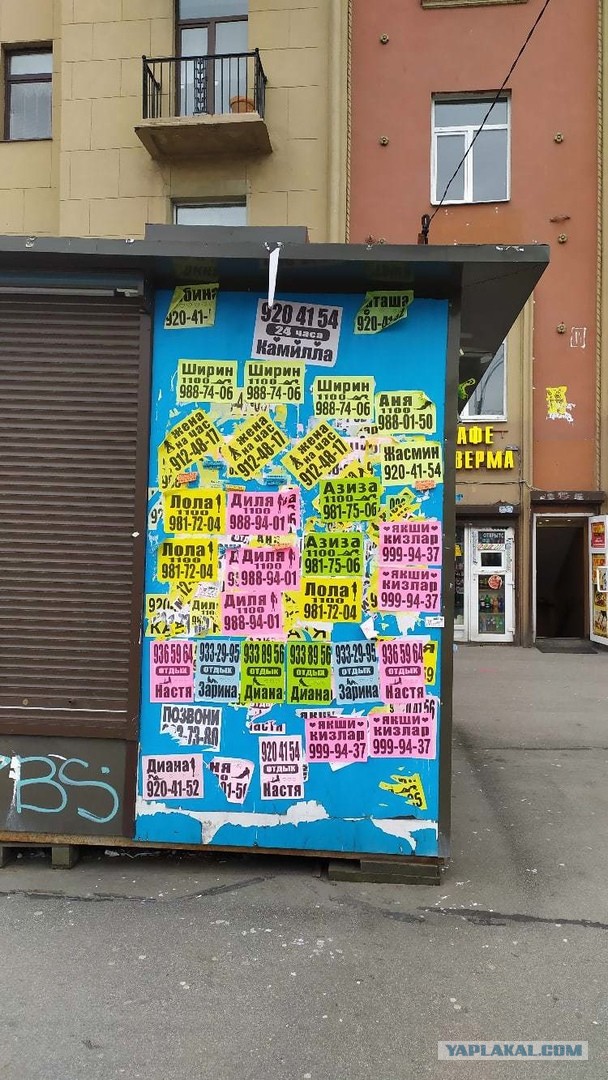 920-41-
920 41 54
24 часа
Камилла
таша
920-4
Ширин
1100
988-74-06
Ширин
1100
988-74-06
Ширин
1100
988-74-06
Аня
1100
988-01-50
жена
на час
912-48-17
жена
на час
912-48-17
жена
на час
912-48-17
Жасмин
920-41-54
Лола
1100
981-72-04
Диля
1100
988-94-01
Азиза
1100
981-75-06
якши
кизлар
999-94-37
Лола
1100
981-72-04
Диля
1100
988-94-01
Азиза
1100
981-75-06
якши
кизлар
999-94-37
Диля
1100
988-94-01
Лола
1100
981-72-04
936 59 64
отдых
Настя
933-29-95
отдых
Зарина
933 89 56
отдых
Диана
933 89 56
отдых
Диана
933-29-95
отдых
Зарина
936 59 64
отдых
Настя
ПОЗВОНИ
-73-80
якши
кизлар
999-94-37
якши
кизлар
999-94-37
Диана
920-41-52
ня
920 41 54
отдых
Настя
АФЕ
ВЕРМА
YAPLAKAL.COM